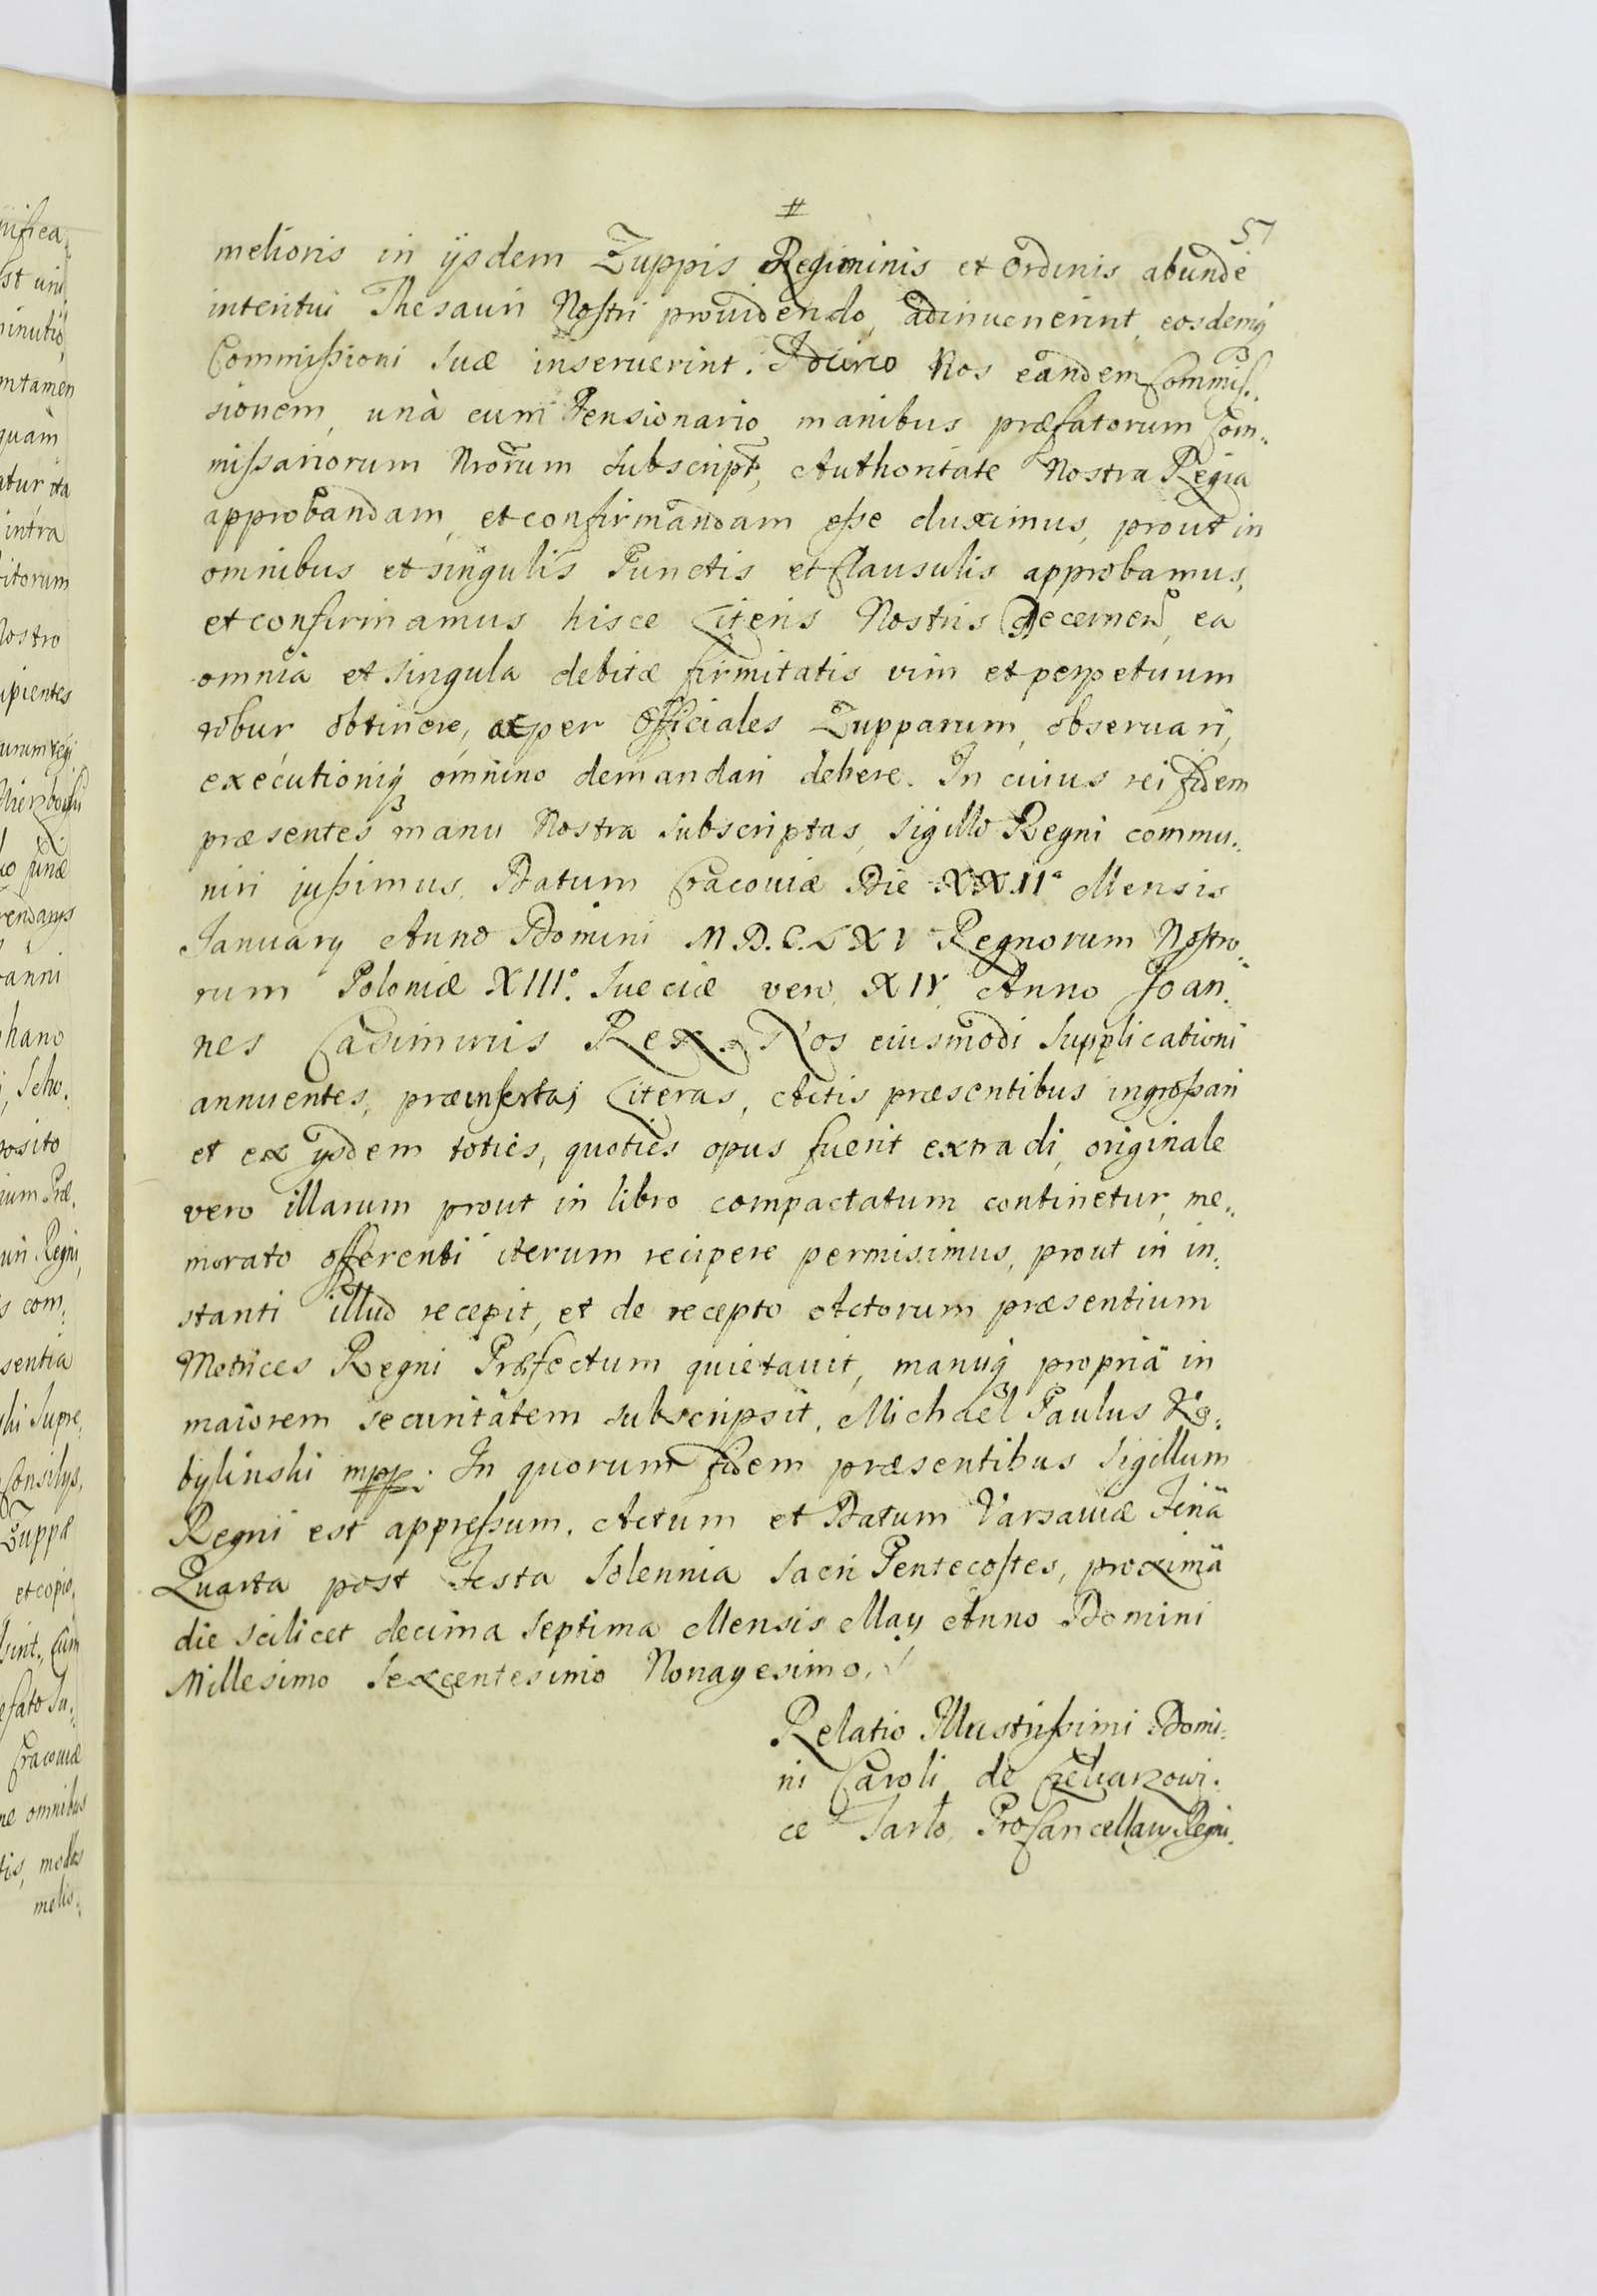 #
57
melioris in ijsdem Zuppis Regiminis et Ordinis abundè
interitui Thesauri Nostri prouidendo, adinuenerint, eosdemq
Commissioni suæ inseruerint. Idcirco Nos eandem Commis..
sionem, unà cum Pensionario manibus præfatorum Com..
missariorum Nrorum subscript, Authoritate Nostra Regia
approbandam, et confirmandam esse duximus, prout in
omnibus et singulis Punctis et Clausulis approbamus,
et confirmamus hisce Literis Nostris Decernen, ea
omnia et singula debitæ firmitatis vim et perpetuum
robur obtinere, ac per Officiales Zupparum, obseruari,
executioniq omnino demandari debere. In cuius rei fidem
præsentes manu Nostra subscriptas, sigillo Regni commu..
niri jussimus. Datum Cracouiæ Die XXII° Mensis
January Anno Domini M.D.C.LXV Regnorum Nostro..
rum Poloniæ XIII°. Sueciæ vero XIV. Anno Joan..
nes Casimirus Rex. Nos eiusmodi Supplicationi
annuentes, præinsertas Literas, Actis præsentibus ingrossari
et ex ijsdem toties, quoties opus fuerit extradi, originale
vero illarum prout in libro compactatum continetur, me..
morato offerenti iterum recipere permisimus, prout in in..
stanti illud recepit, et de recepto Actorum præsentium
Metrices Regni Præfectum quietauit, manuq propriâ in
maiorem securitatem subscripsit. Michael Paulus Ko..
bylinski mpp. In quorum fidem præsentibus Sigillum
Regni est appressum. Actum et Datum Varsauiæ Feriâ
Quarta post Festa Solennia Sacri Pentecostes, proximâ
die scilicet decima Septima Mensis May Anno Domini
Millesimo Sexcentesimo Nonagesimo.
Relatio Illustrissimi Domi..
ni Caroli de Czekarzowi..
ce Tarło, ProCancellarij Regni.